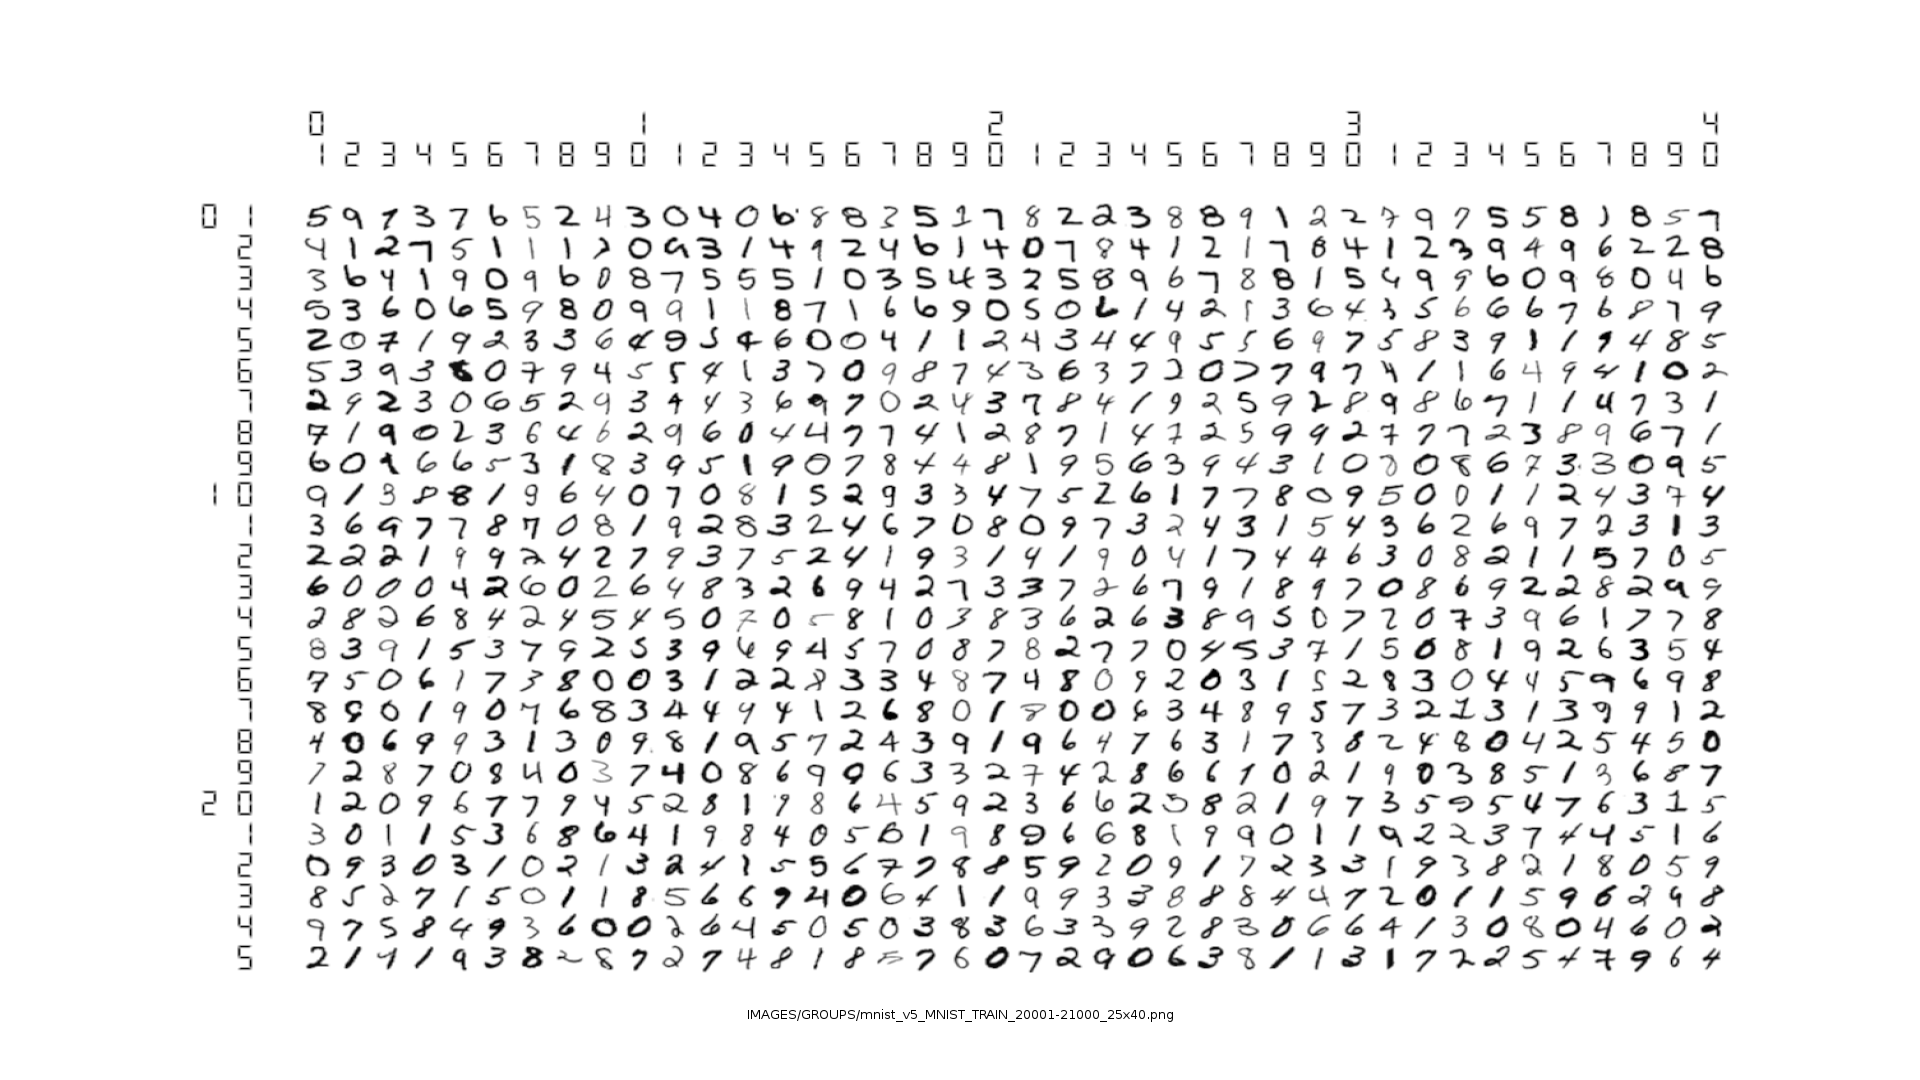 0 1 2 3 4
1 2 3 4 5 6 7 8 9 0 1 2 3 4 5 6 7 8 9 0 1 2 3 4 5 6 7 8 9 0 1 2 3 4 5 6 7 8 9 0
0 1 5 9 7 3 7 6 5 2 4 3 0 4 0 6 8 8 3 5 1 7 8 2 2 3 8 8 9 1 2 2 7 9 7 5 5 8 1 8 5 7
2 4 1 2 7 5 1 1 1 7 0 9 3 1 4 9 2 4 6 1 4 0 7 8 4 1 2 1 7 8 4 1 2 3 9 4 9 6 2 2 8
3 3 6 4 1 9 0 9 6 0 8 7 5 5 5 1 0 3 5 4 3 2 5 8 9 6 7 8 8 1 5 4 9 9 6 0 9 8 0 4 6
4 5 3 6 0 6 5 9 8 0 9 9 1 1 8 7 1 6 6 9 0 5 0 6 1 4 2 1 3 6 4 3 5 6 6 6 7 6 8 7 9
5 2 0 7 1 9 2 3 3 6 4 9 5 4 6 0 0 4 1 1 2 4 3 4 4 9 5 5 6 9 7 5 8 3 9 1 1 9 4 8 5
6 5 3 9 3 8 0 7 9 4 5 5 4 1 3 7 0 9 8 7 4 3 6 3 7 2 0 7 7 9 7 4 1 1 6 4 9 4 1 0 2
7 2 9 2 3 0 6 5 2 9 3 9 4 3 6 9 7 0 2 4 3 7 8 4 1 9 2 5 9 2 8 9 8 6 7 1 1 4 7 3 1
8 7 1 9 0 2 3 6 4 6 2 9 6 0 4 4 7 7 4 1 2 8 7 1 4 7 2 5 9 9 2 7 7 7 2 3 8 9 6 7 1
9 6 0 9 6 6 5 3 1 8 3 9 5 1 9 0 7 8 4 4 8 1 9 5 6 3 9 4 3 1 0 7 0 8 6 7 3 3 0 9 5
1 0 9 1 3 8 8 1 9 6 4 0 7 0 8 1 5 2 9 3 3 4 7 5 2 6 1 7 7 8 0 9 5 0 0 1 1 2 4 3 7 4
1 3 6 9 7 7 8 7 0 8 1 9 2 8 3 2 4 6 7 0 8 0 9 7 3 2 4 3 1 5 4 3 6 2 6 9 7 2 3 1 3
2 2 2 2 1 9 9 2 4 2 7 9 3 7 5 2 4 1 9 3 1 9 1 9 0 4 1 7 4 4 6 3 0 8 2 1 1 5 7 0 5
3 6 0 0 0 4 2 6 0 2 6 4 8 3 2 6 9 4 2 7 3 3 7 2 6 7 9 1 8 9 7 0 8 6 9 2 2 8 2 9 9
4 2 8 2 6 8 4 2 4 5 4 5 0 7 0 5 8 1 0 3 8 3 6 2 6 3 8 9 5 0 7 2 0 7 3 9 6 1 7 7 8
5 8 3 9 1 5 3 7 9 2 5 3 9 6 9 4 5 7 0 8 7 8 2 7 7 0 4 5 3 7 1 5 0 8 1 9 2 6 3 5 4
6 7 5 0 6 1 7 3 8 0 0 3 1 2 2 8 3 3 4 8 7 4 8 0 9 2 0 3 1 5 2 8 3 0 4 4 5 9 6 9 8
7 8 9 0 1 9 0 7 6 8 3 4 4 9 4 1 2 6 8 0 1 8 0 0 6 3 4 8 9 5 7 3 2 1 3 1 3 9 9 1 2
8 4 0 6 9 9 3 1 3 0 9 8 1 9 5 7 2 4 3 9 1 9 6 4 7 6 3 1 7 3 8 2 4 8 0 4 2 5 4 5 0
9 7 2 8 7 0 8 4 0 3 7 4 0 8 6 9 9 6 3 3 2 7 4 2 8 6 6 1 0 2 1 9 0 3 8 5 1 3 6 8 7
2 0 1 2 0 9 6 7 7 9 4 5 2 8 1 9 8 6 4 5 9 2 3 6 6 2 5 8 2 1 9 7 3 5 9 5 4 7 6 3 1 5
1 3 0 1 1 5 3 6 8 6 4 1 9 8 4 0 5 6 1 9 8 9 6 6 8 1 9 9 0 1 1 9 2 2 3 7 4 4 5 1 6
2 0 9 3 0 3 1 0 2 1 3 2 4 1 5 5 6 7 7 8 8 5 9 2 0 9 1 7 2 3 3 1 9 3 8 2 1 8 0 5 9
3 8 5 2 7 1 5 0 1 1 8 5 6 6 9 4 0 6 4 1 1 9 9 3 3 8 8 8 4 4 7 2 0 1 1 5 9 6 2 9 8
4 9 7 5 8 4 9 3 6 0 0 2 6 4 5 0 5 0 3 8 3 6 3 3 9 2 8 3 0 6 6 4 1 3 0 8 0 4 6 0 2
5 2 1 4 1 9 3 8 2 8 7 2 7 4 8 1 8 5 7 6 0 7 2 9 0 6 3 8 1 1 3 1 7 2 2 5 4 7 9 6 4
IMAGES/GROUPS/mnist_v5_MNIST_TRAIN_20001-21000_25x40.png